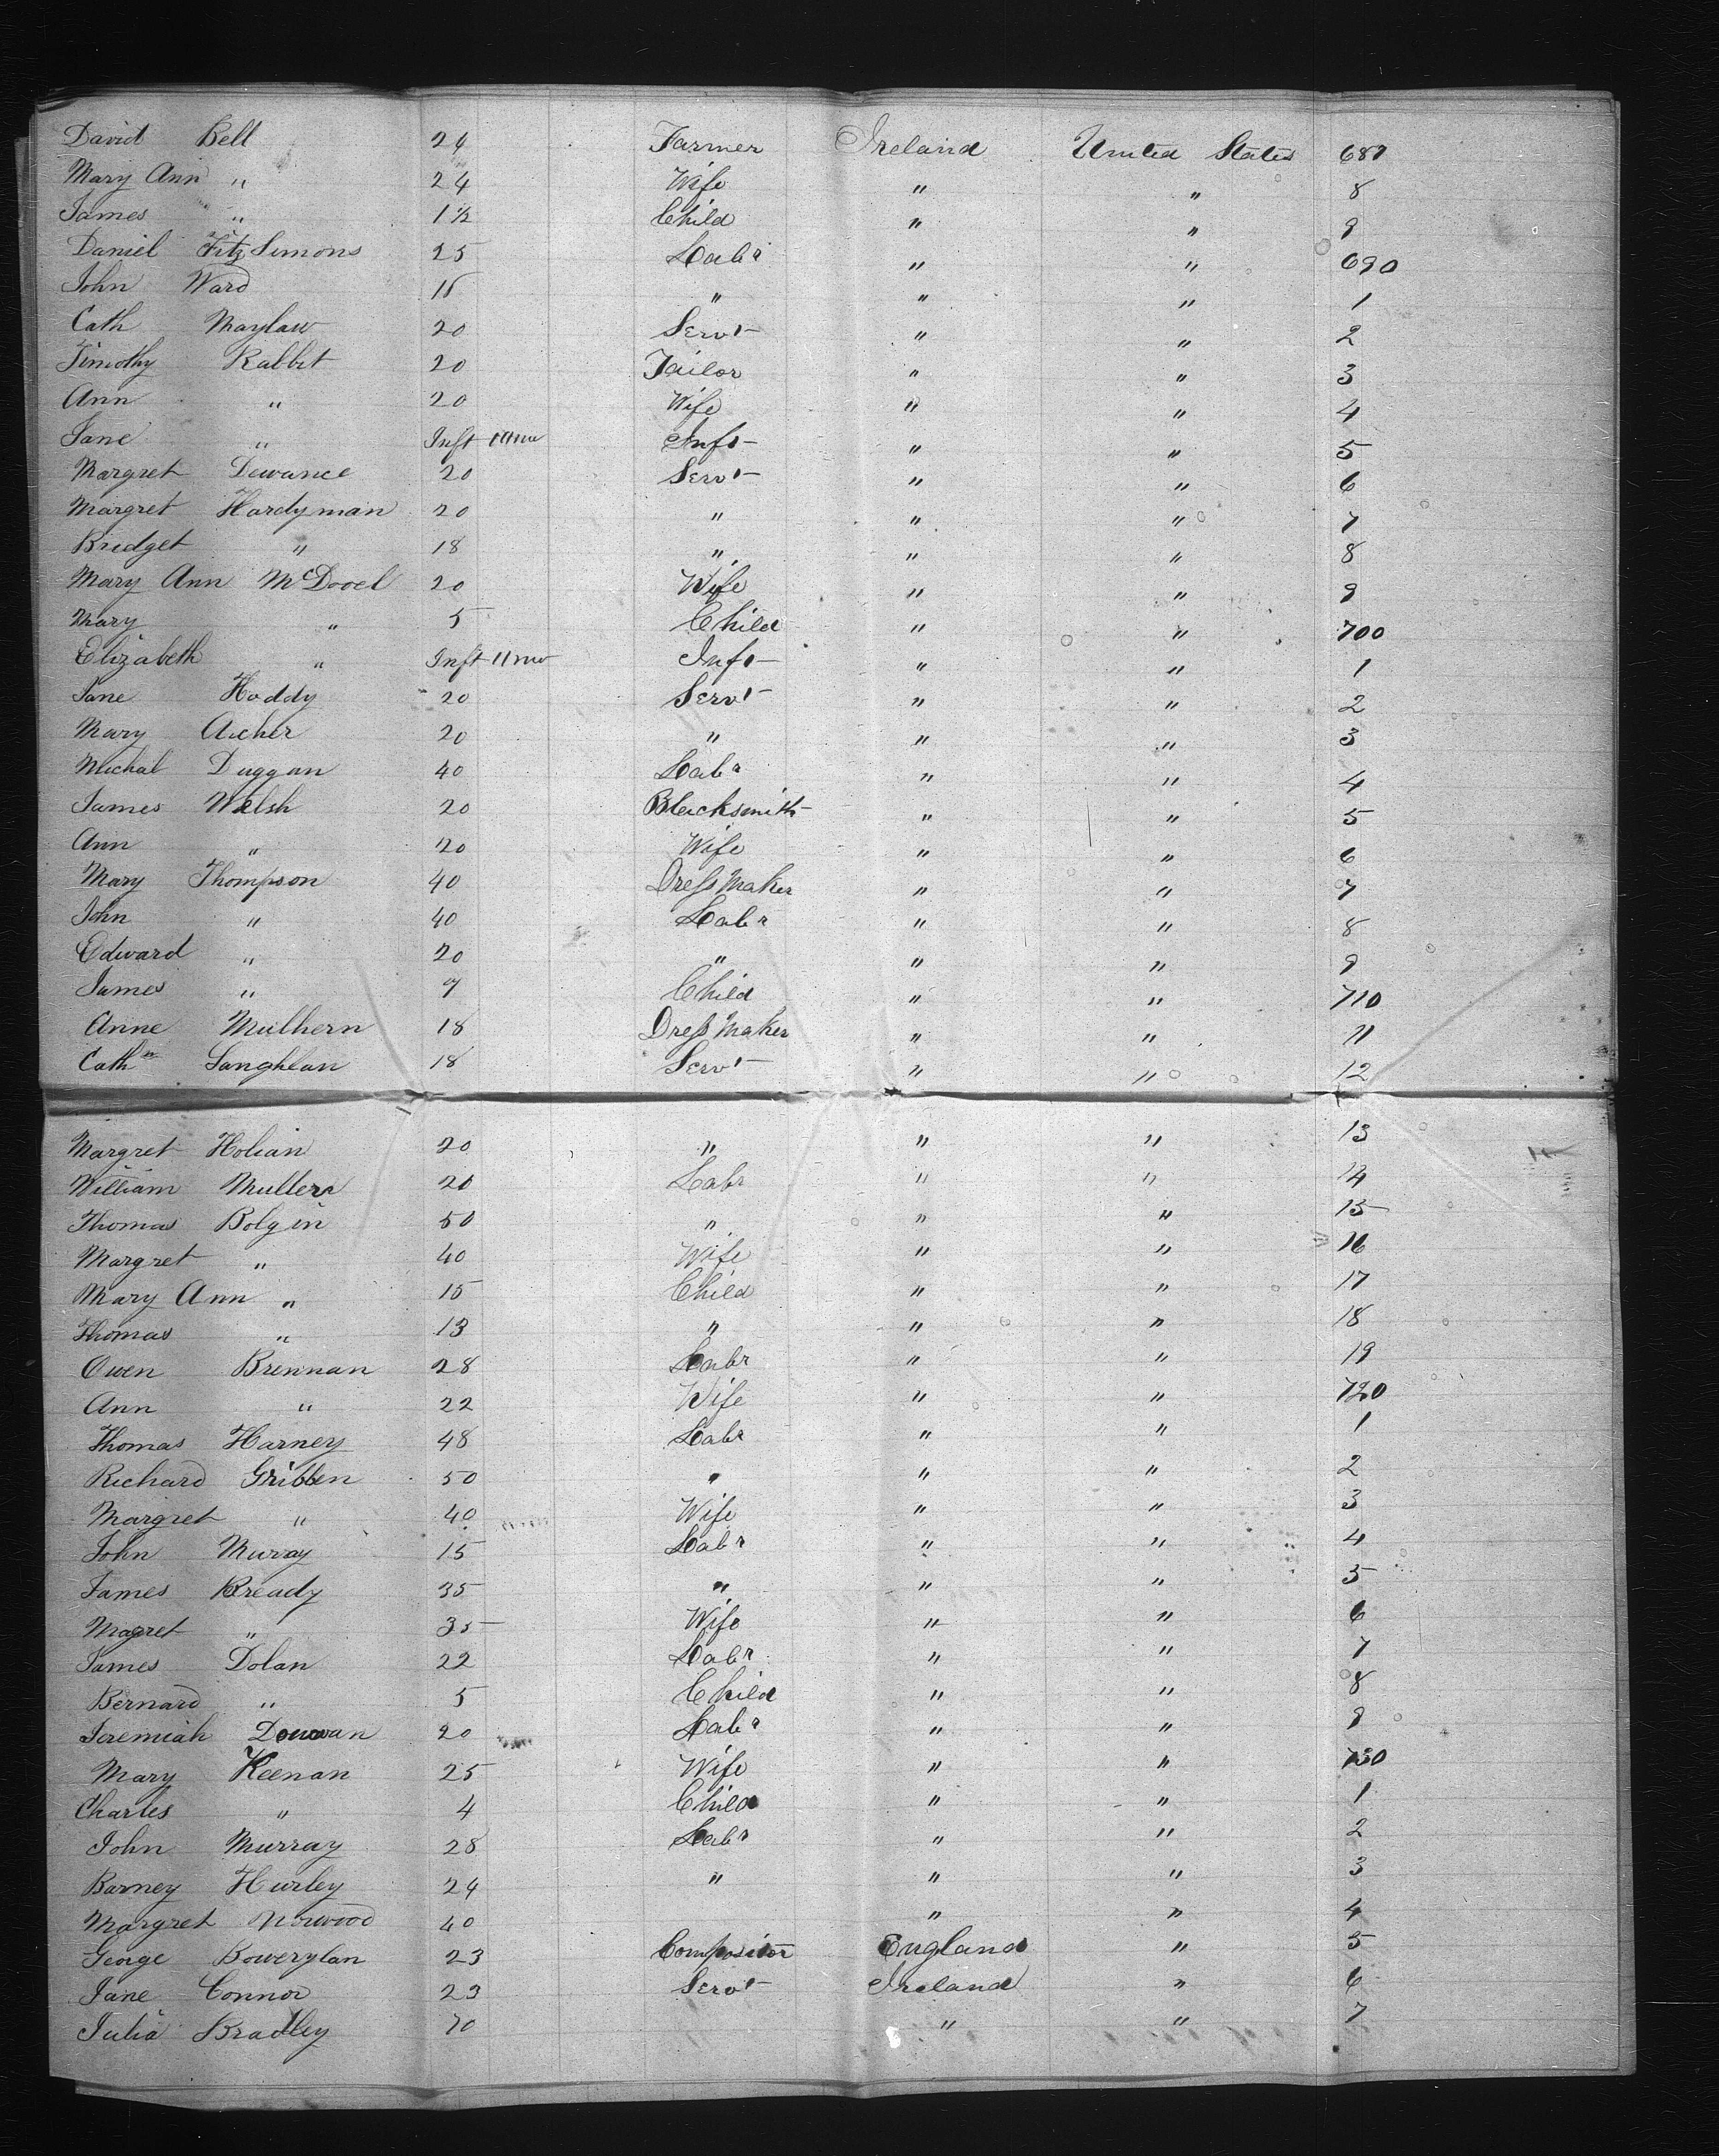 David Bell 24 Farmer Ireland United States 687
Mary Ann " 24 Wife " " 8
James " 1 1/2 Child " " 9
Daniel FitzSimons 25 Labr " " 690
John Ward 18 " " " 1
Cath Maylaw 20 Servt " " 2
Timothy Rabbit 20 Tailor " " 3
Ann " 20 Wife " " 4
Jane " Inft Inft " " 5
Margret Dewance 20 Servt " " 6
Margret Hardyman 20 " " " 7
Bridget " 18 " " " 8
Mary Ann McDooel 20 Wife " " 9
Mary " 5 Child " " 700
Elizabeth " Inft 11 mo Inft " " 1
Jane Hoddy 20 Servt " " 2
Mary Archer 20 " " " 3
Michal Duggan 40 Labr " " 4
James Welsh 20 Blacksmith " " 5
Ann " 20 Wife " " 6
Mary Thompson 40 Dress Maker " " 7
John " 40 Labr " " 8
Edward " 20 " " " 9
James " 7 Child " " 710
Anne Mulhern 18 Dress Maker " " 11
Cathn Langhlan 18 Servt " " 12
Margret Holian 20 " " " 13
William Mullen 20 Labr " " 14
Thomas Bolgin 50 " " " 15
Margret " 40 Wife " " 16
Mary Ann " 15 Child " " 17
Thomas " 13 " " " 18
Owen Brennan 28 Labr " " 19
Ann " 22 Wife " " 720
Thomas Harney 48 Labr " " 1
Richard Gribben 50 " " " 2
Margret " 40 Wife " " 3
John Muray 15 Labr " " 4
James Bready 35 " " " 5
Magret " 35 Wife " " 6
James Dolan 22 Labr " " 7
Bernard " 5 Child " " 8
Jeremiah 20 Labr " " 9
Mary Keenan 25 Wife " " 730
Charles " 4 Child " " 1
John Murray 28 Labr " " 2
Barney Hurley 24 " " " 3
Margret Norwood 40 " " 4
George Bowerylan 23 Compositor England " 5
Jane Connor 23 Servt Ireland " 6
Julia Bradley 70 " " 7